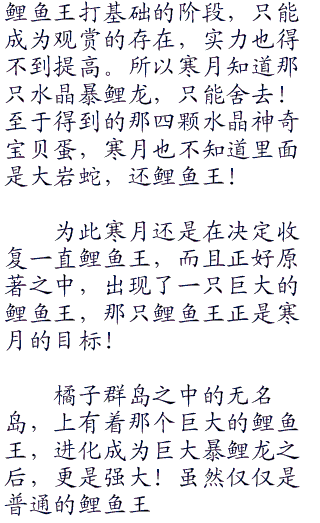 鲤鱼王打基础的阶段，只能
成为观赏的存在，实力也得
不到提高。所以寒月知道那
只水晶暴鲤龙，只能舍去！
至于得到的那四颗水晶神奇
宝贝蛋，寒月也不知道里面
是大岩蛇，还鲤鱼王！
为此寒月还是在决定收
复一直鲤鱼王，而且正好原
著之中，出现了一只巨大的
鲤鱼王，那只鲤鱼王正是寒
月的目标！
橘子群岛之中的无名
岛，上有着那个巨大的鲤鱼
王，进化成为巨大暴鲤龙之
后，更是强大！虽然仅仅是
普通的鲤鱼王